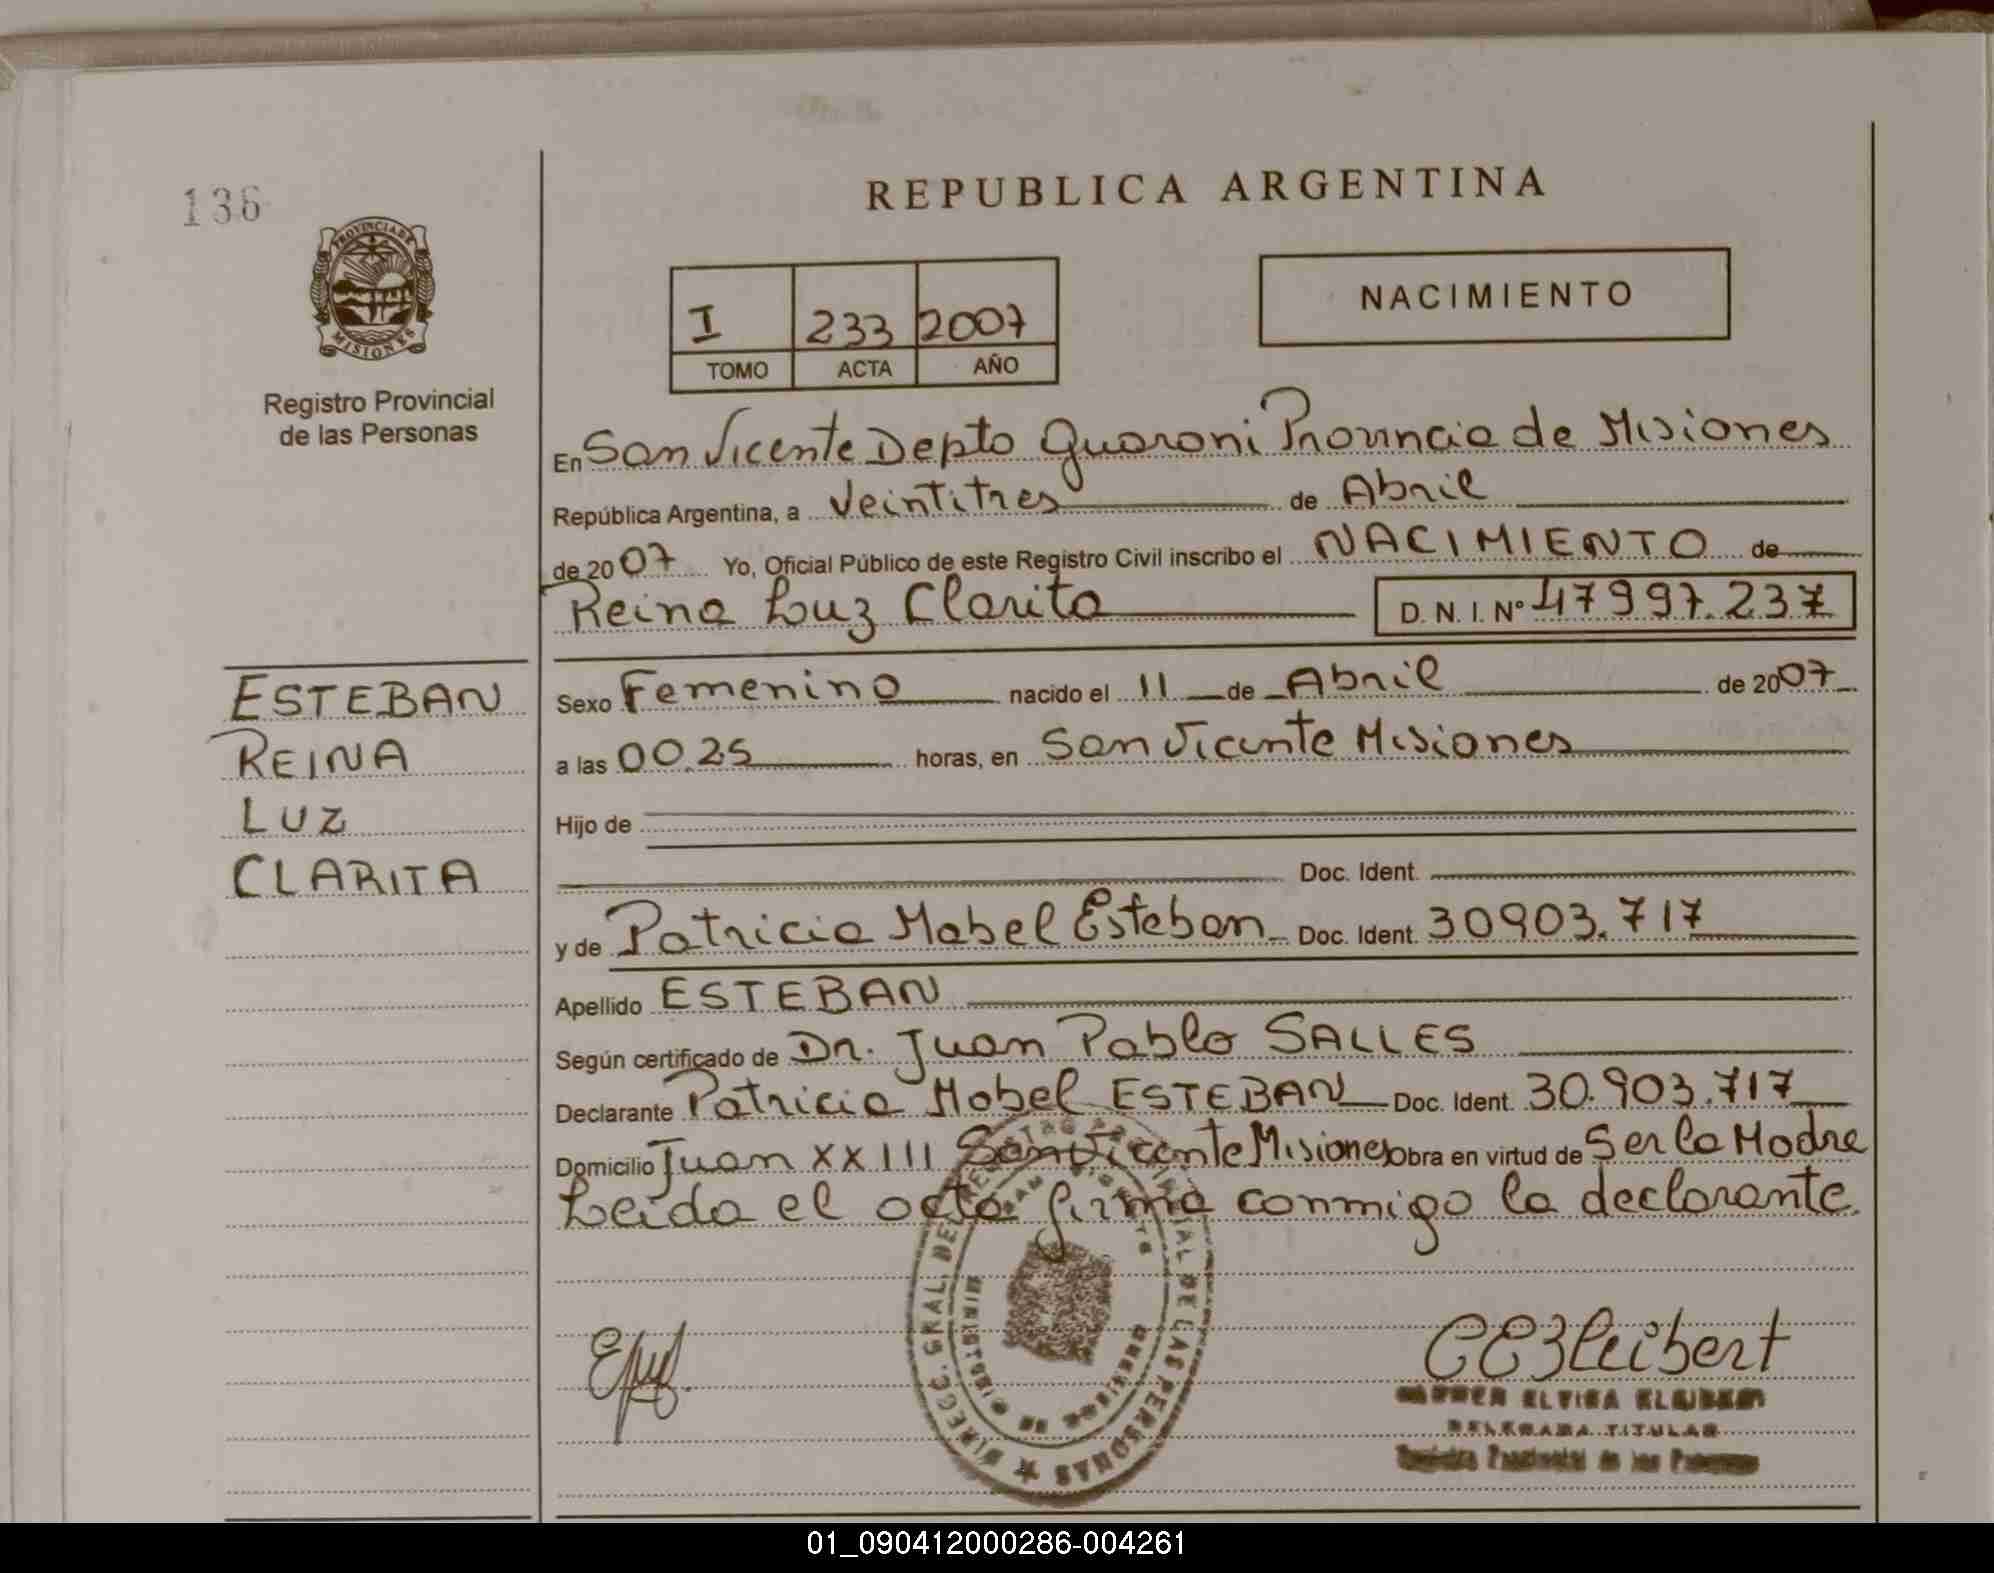 136
REPUBLICA ARGENTINA
PROVINCIA DE
MISIONES
Registro Provincial
de las Personas
I 233 2007
TOMO ACTA AÑO
NACIMIENTO
En San Vicente Depto Guarani Provincia de Misiones
República Argentina, a Veintitres de Abril
de 2007 Yo, Oficial Público de este Registro Civil inscribo el NACIMIENTO de
Reina Luz Clarita D.N.I. Nº 47997.237
ESTEBAN
REINA
LUZ
CLARITA
Sexo Femenino nacido el 11 de Abril de 2007
a las 00.25 horas, en San Vicente Misiones
Hijo de
Doc. Ident.
y de Patricia Mabel Esteban Doc. Ident. 30903.717
Apellido ESTEBAN
Según certificado de Dr. Juan Pablo SALLES
Declarante Patricia Mabel ESTEBAN Doc. Ident. 30.903.717
Domicilio Juan XXIII San Vicente Misiones Obra en virtud de Ser la Madre
Leida el acta firma conmigo la declarante.
DIRECC. GRAL. DEL REGISTRO PROVINCIAL DE LAS PERSONAS
CEKleibert
ELVIRA
DELEGADA TITULAR
Registro Provincial de las Personas
01_090412000286-004261